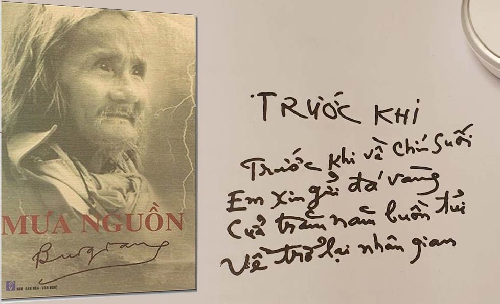 MƯA NGUỒN
Bùi giáng
TRƯỚC KHI
Trước khi về chín suối
Em xin gửi đá vàng
Của trăm năm buồn tủi
Về trở lại nhân gian